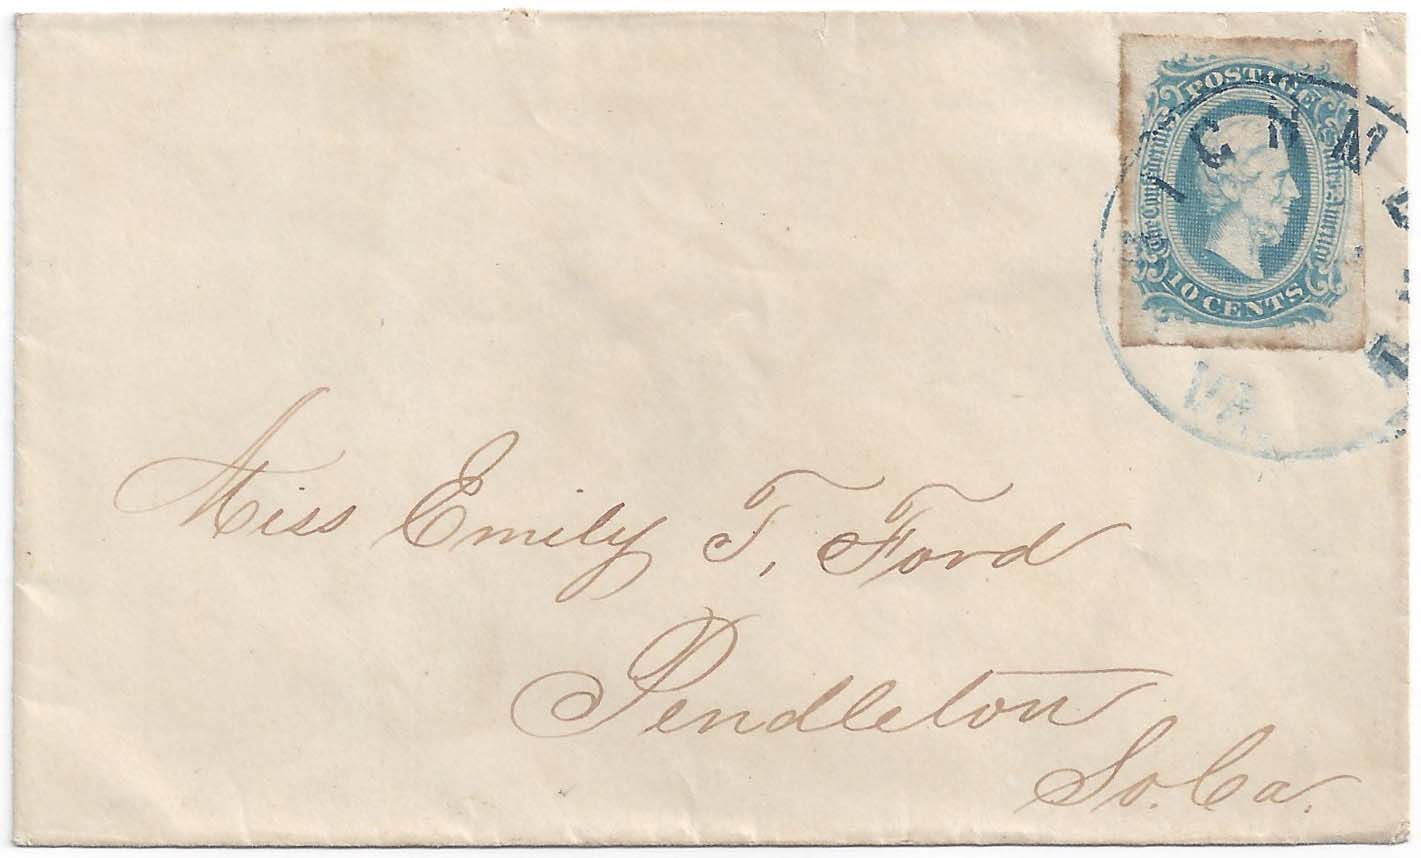 POSTAGE
The Confederate States of America
10 CENTS
VA.
Miss Emily T. Ford
Pendleton
So. Ca.